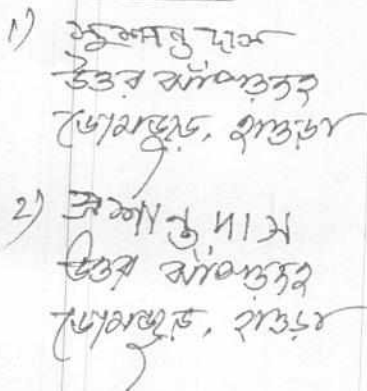 ১) সুশান্ত দাস
উত্তর ঝাঁপড়দহ
ডোমজুড়, হাওড়া
২) প্রশান্ত দাস
উত্তর ঝাঁপড়দহ
ডোমজুড়, হাওড়া